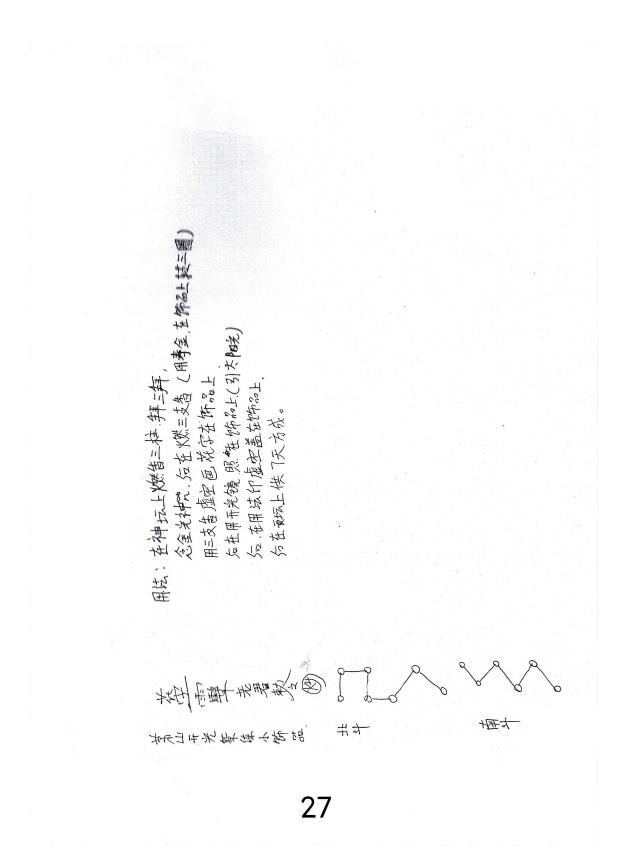 茅山开光聚集小饰品
老君敕令
北斗
南斗
用法：在神坛上燃香三柱，拜三拜，
念金光神咒，后在燃三支香（用寿金，在饰品上转三圈）
用三支香虚空画花字在饰品上
后在用开光镜照在饰品上（引太阳光）
后，在用法印虚空盖在饰品上，
后在坛上供7天方成。
27